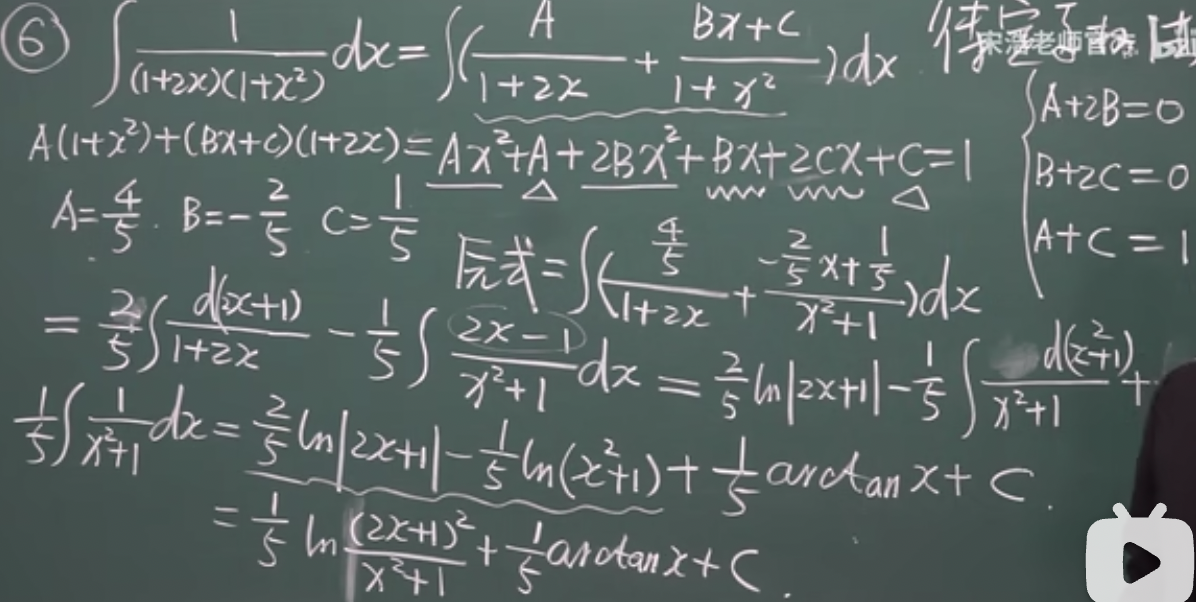 ⑥ ∫ 1/((1+2x)(1+x²)) dx = ∫( A/(1+2x) + (Bx+C)/(1+x²) )dx 待定系
宋浩老师官
A(1+x²)+(Bx+C)(1+2x)=Ax²+A+2Bx²+Bx+2Cx+C=1
{ A+2B=0
B+2C=0
A+C=1
A=4/5. B=-2/5 C=1/5
原式=∫( (4/5)/(1+2x) + (-2/5 x+1/5)/(x²+1) )dx
= 2/5 ∫ d(2x+1)/(1+2x) - 1/5 ∫ (2x-1)/(x²+1) dx = 2/5 ln|2x+1| - 1/5 ∫ d(x²+1)/(x²+1) +
1/5 ∫ 1/(x²+1) dx = 2/5 ln|2x+1| - 1/5 ln(x²+1) + 1/5 arctan x + C.
= 1/5 ln (2x+1)²/(x²+1) + 1/5 arctan x + C.